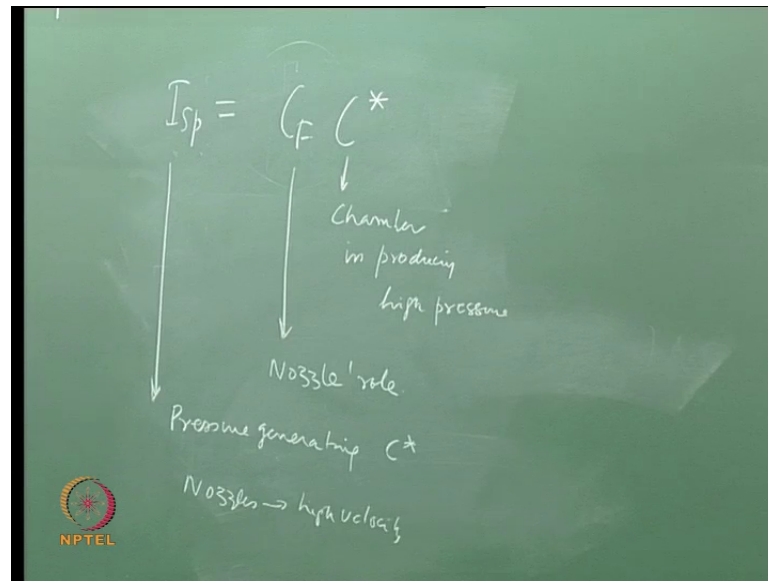 Isp = CF C*
Chamber
in producing
high pressure
Nozzle' role.
Pressure generating C*
Nozzles → high velocity
NPTEL